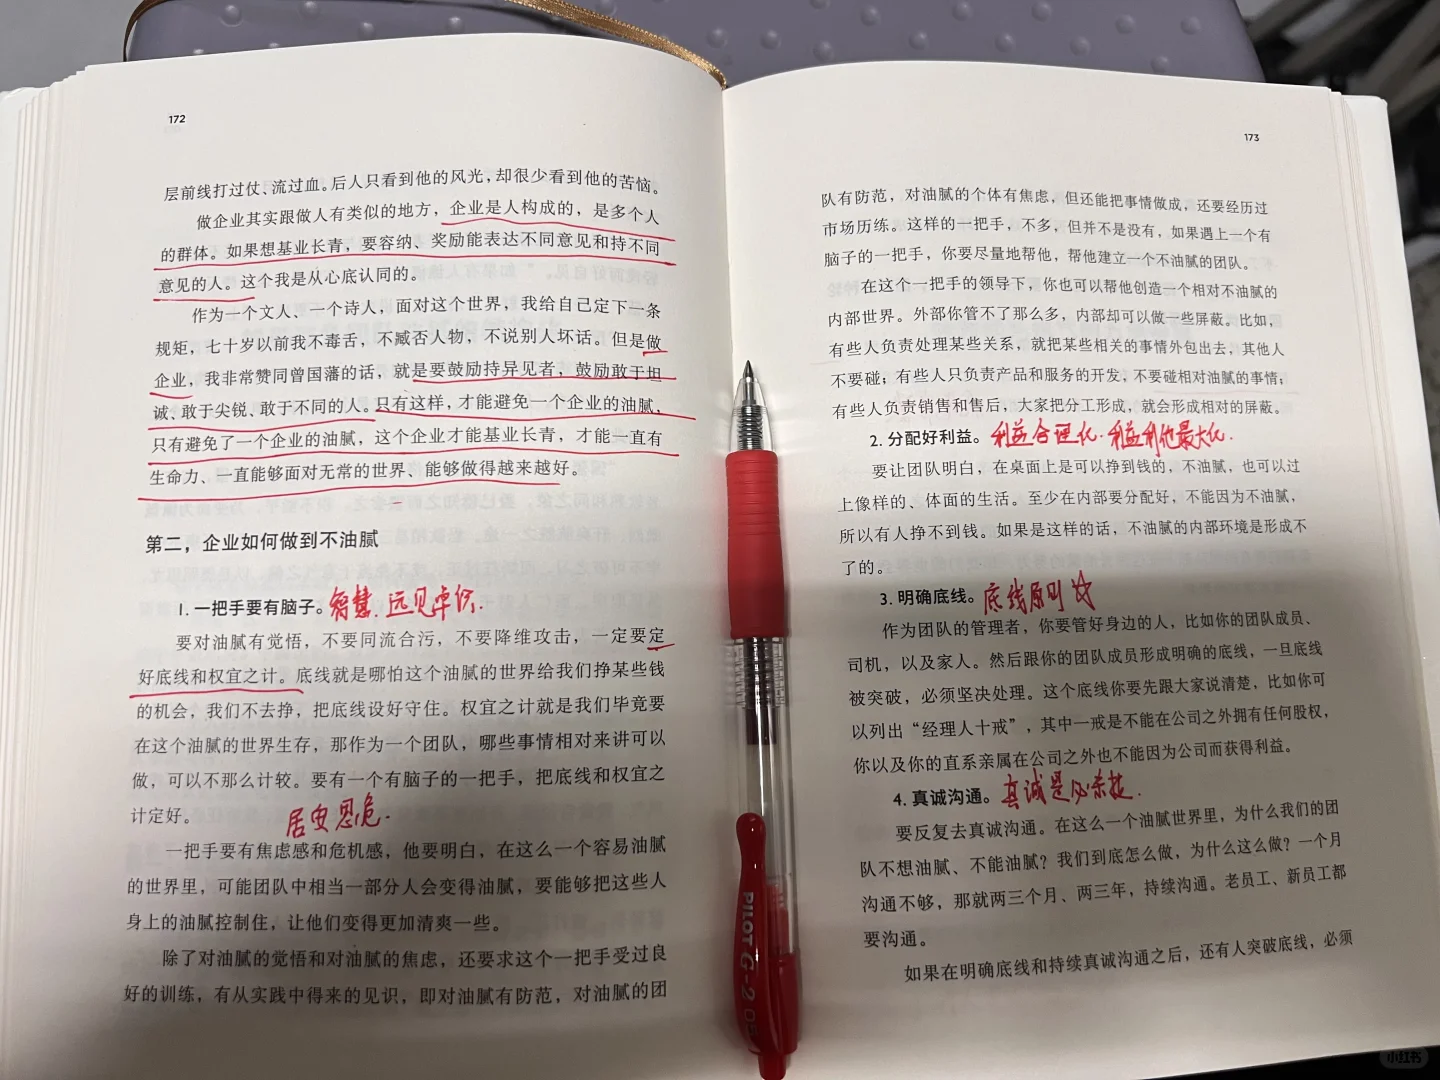 172
层前线打过仗、流过血。后人只看到他的风光，却很少看到他的苦恼。
做企业其实跟做人有类似的地方，企业是人构成的，是多个人
的群体。如果想基业长青，要容纳、奖励能表达不同意见和持不同
意见的人。这个我是从心底认同的。
作为一个文人、一个诗人，面对这个世界，我给自己定下一条
规矩，七十岁以前我不毒舌，不臧否人物，不说别人坏话。但是做
企业，我非常赞同曾国藩的话，就是要鼓励持异见者，鼓励敢于坦
诚、敢于尖锐、敢于不同的人。只有这样，才能避免一个企业的油腻，
只有避免了一个企业的油腻，这个企业才能基业长青，才能一直有
生命力、一直能够面对无常的世界、能够做得越来越好。
第二，企业如何做到不油腻
1. 一把手要有脑子。智慧.远见卓识.
要对油腻有觉悟，不要同流合污，不要降维攻击，一定要定
好底线和权宜之计。底线就是哪怕这个油腻的世界给我们挣某些钱
的机会，我们不去挣，把底线设好守住。权宜之计就是我们毕竟要
在这个油腻的世界生存，那作为一个团队，哪些事情相对来讲可以
做，可以不那么计较。要有一个有脑子的一把手，把底线和权宜之
计定好。
居安思危.
一把手要有焦虑感和危机感，他要明白，在这么一个容易油腻
的世界里，可能团队中相当一部分人会变得油腻，要能够把这些人
身上的油腻控制住，让他们变得更加清爽一些。
除了对油腻的觉悟和对油腻的焦虑，还要求这个一把手受过良
好的训练，有从实践中得来的见识，即对油腻有防范，对油腻的团
173
队有防范，对油腻的个体有焦虑，但还能把事情做成，还要经历过
市场历练。这样的一把手，不多，但并不是没有，如果遇上一个有
脑子的一把手，你要尽量地帮他，帮他建立一个不油腻的团队。
在这个一把手的领导下，你也可以帮他创造一个相对不油腻的
内部世界。外部你管不了那么多，内部却可以做一些屏蔽。比如，
有些人负责处理某些关系，就把某些相关的事情外包出去，其他人
不要碰；有些人只负责产品和服务的开发，不要碰相对油腻的事情；
有些人负责销售和售后，大家把分工形成，就会形成相对的屏蔽。
2. 分配好利益。利益合理化.利益利他最大化.
要让团队明白，在桌面上是可以挣到钱的，不油腻，也可以过
上像样的、体面的生活。至少在内部要分配好，不能因为不油腻，
所以有人挣不到钱。如果是这样的话，不油腻的内部环境是形成不
了的。
3. 明确底线。底线原则☆
作为团队的管理者，你要管好身边的人，比如你的团队成员、
司机，以及家人。然后跟你的团队成员形成明确的底线，一旦底线
被突破，必须坚决处理。这个底线你要先跟大家说清楚，比如你可
以列出“经理人十戒”，其中一戒是不能在公司之外拥有任何股权，
你以及你的直系亲属在公司之外也不能因为公司而获得利益。
4. 真诚沟通。真诚是必杀技.
要反复去真诚沟通。在这么一个油腻世界里，为什么我们的团
队不想油腻、不能油腻？我们到底怎么做，为什么这么做？一个月
沟通不够，那就两三个月、两三年，持续沟通。老员工、新员工都
要沟通。
如果在明确底线和持续真诚沟通之后，还有人突破底线，必须
PILOT G-2 05
小红书